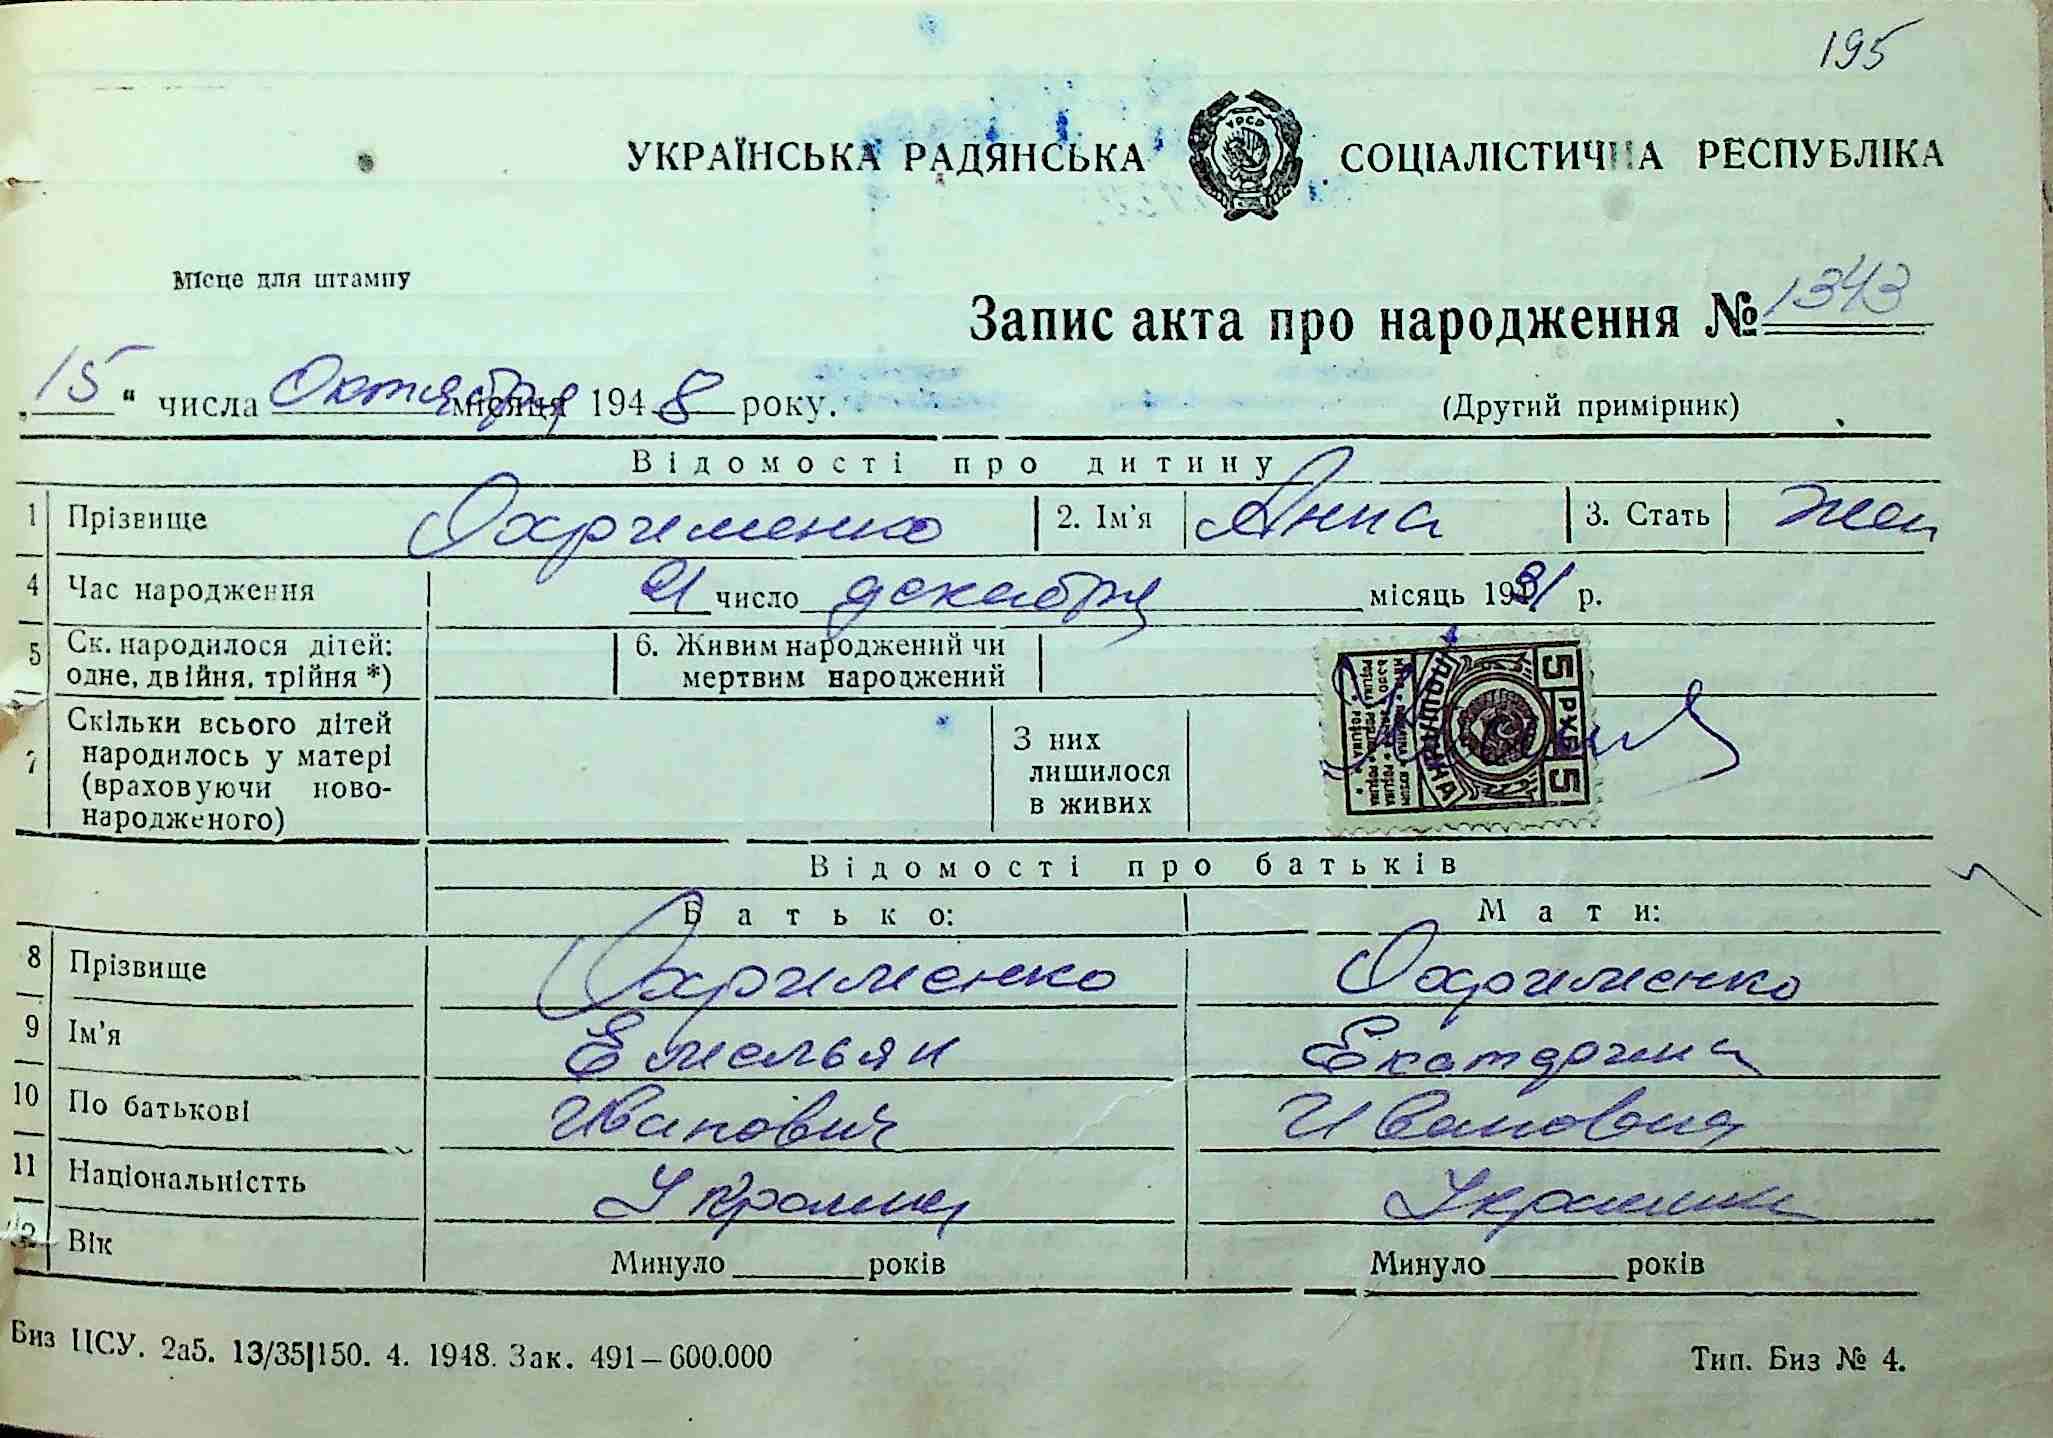 195
УКРАЇНСЬКА РАДЯНСЬКА СОЦІАЛІСТИЧНА РЕСПУБЛІКА
УРСР
Місце для штампу
Запис акта про народження № 1343
„15“ числа Октября місяця 1948 року.
(Другий примірник)
Відомості про дитину
1 Прізвище Охрименко 2. Ім'я Анна 3. Стать жен
4 Час народження 21 число декабря місяць 1931 р.
5 Ск. народилося дітей: одне, двійня, трійня *) 6. Живим народжений чи мертвим народжений
7 Скільки всього дітей народилось у матері (враховуючи ново-народженого) З них лишилося в живих
5 РУБ 5
Відомості про батьків
Батько: Мати:
8 Прізвище Охрименко Охрименко
9 Ім'я Емельян Екатерина
10 По батькові Иванович Ивановна
11 Національністть Украинец Украинка
12 Вік Минуло ______ років Минуло ______ років
Биз ЦСУ. 2а5. 13/35|150. 4. 1948. Зак. 491—600.000
Тип. Биз № 4.